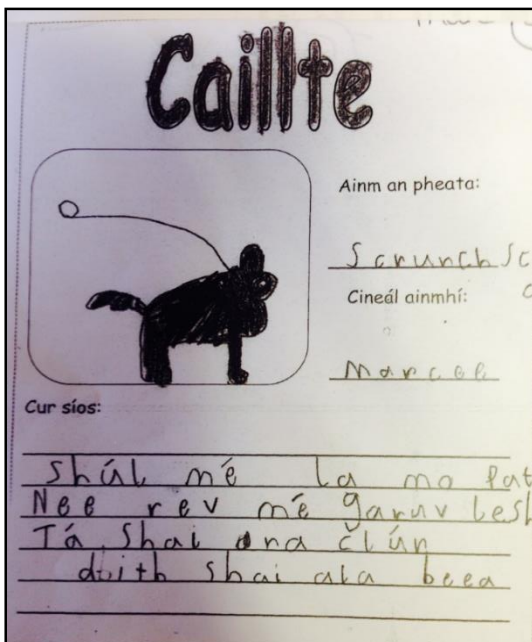 Caillte
Ainm an pheata:
Scrunch Sc
Cineál ainmhí:
Cur síos:
Shúl mé la mo pat
Nee rev mé garuv lesh
Tá Shai ana clún
doith Shai ala beea